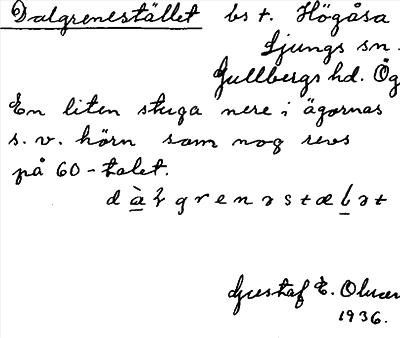 Dalgrenestället bst. Högåsa
Ljungs sn.
Gullbergs hd. Ög
En liten stuga nere i ägornas
s.v. hörn som nog revs
på 60-talet.
dàlgrenəstælət
Gustaf E.
1936.